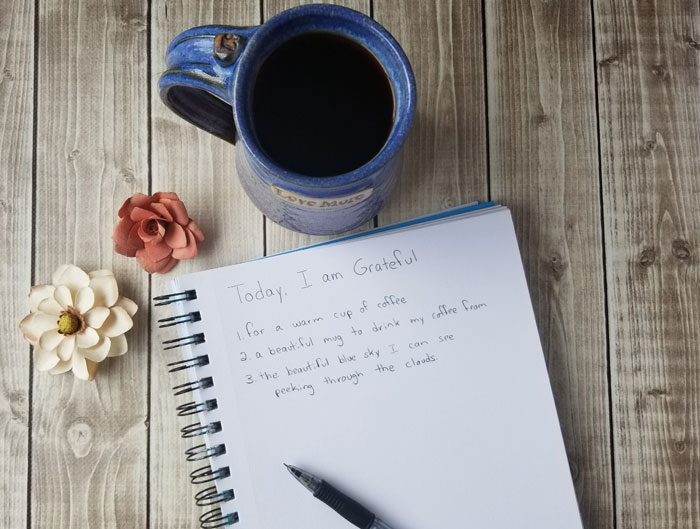 Love Mute
Today, I am Grateful
1. for a warm cup of coffee
2. a beautiful mug to drink my coffee from
3. the beautiful blue sky I can see
peeking through the clouds.